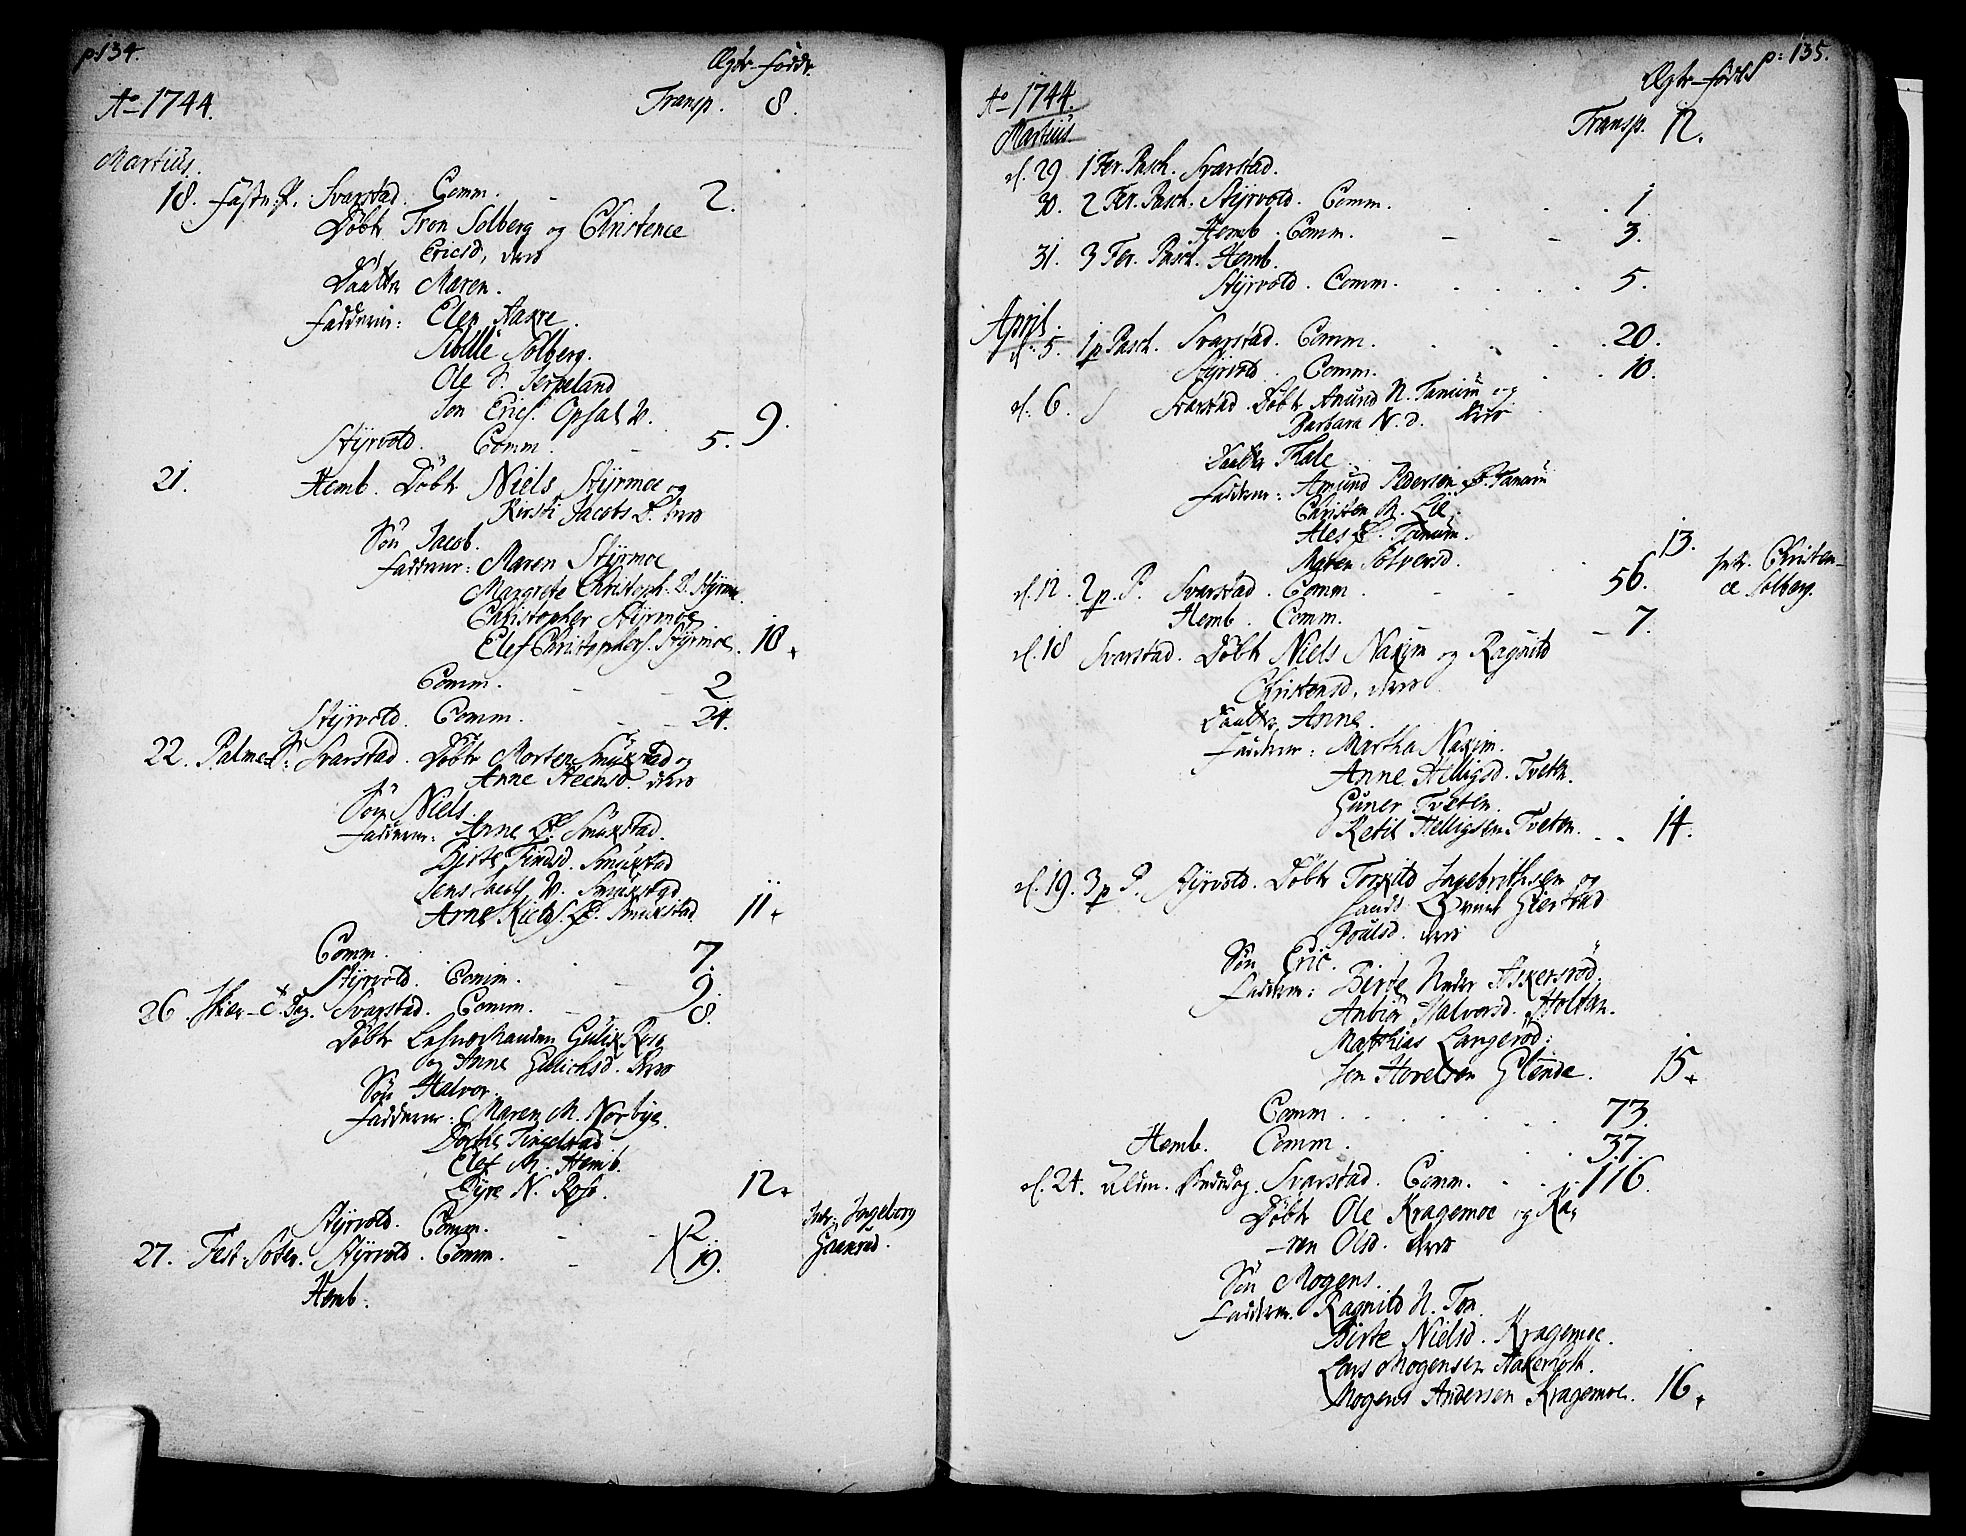 p: 134.
Ægte-fødde.
Ao 1744. Transp. 8.
Martius.
18. Faste Pr. Svarstad. Comm. 2.
Døbt Tron Solberg og Christence
Ericsd, deris
Daatter Maren.
Fadderne: Elen Aakre.
Sibille Solberg.
Ole S. Serpeland
Jon Erics. Opsal V. 9.
Styrvold. Comm. 5.
21. Hemb. Døbt Niels Styrmoe og
Kirsti Jacobs D. deris
Søn Jacob.
Fadderne: Maren Styrmoe
Margrete Christoph. D. Styrmoe.
Christopher Styrmoe
Elef Christophers. Styrmoe. 10.
Comm. 2
Styrvold. Comm. 24.
22. Palme S. Svarstad. Døbt Morten Smukstad og
Anne Steensd. deris
Søn Niels.
Fadderne: Anne Smukstad.
Birte Findsd. Smukstad
Jens Jacobs V. Smukstad
Arne Kields. Smukstad. 11.
Comm. 7.
Styrvold. Comm. 9.
26. Skier-T. Dag. Svarstad. Comm. 8.
Døbt Gulik Rose
og Anne Gulichsd. deris
Søn Halvor.
Fadderne: Maren M. Norbye.
Dorthe Tingelstad
Elef M. Hemb.
N. Rose. 12.
Styrvold. Comm. 2
27. Fest. Styrvold. Comm. 19.
Intr. Ingeborg
Hemb.
p: 135.
Ægte-fødde
Ao 1744. Transp. 12.
Martius.
d. 29 1 Fer. Pasch. Svarstad.
30. 2 Fer. Pasch. Styrvold. Comm. 1.
Hemb. Comm. 3.
31. 3 Fer. Pasch. Hemb.
Styrvold. Comm. 5.
April.
d. 5. 1 p Pasch. Svarstad. Comm. 20.
Styrvold. Comm. 10.
d. 6. Svarstad. Døbt Amund N. Tanum og
Barbara N. d. deris
Daatter Thale
Fadderne: Amund Pedersen Tanum
Christen M. Lie.
Ales Tanum.
Maren Solversd. 13.
d. 12. 2 p. P. Svarstad. Comm. 56.
Intr. Christen-
ce Solberg.
Hemb. Comm. 7.
d. 18 Svarstad. Døbt Niels Naxim og Ragnild
Christensd, deris
Daatter Anne.
Fadderne: Martha Naxim.
Anne Helligsd. Tveten.
Guner Tveten.
Ketil Helligsen Tveten. 14.
d. 19. 3 p P. Styrvold. Døbt Torkild Ingebrithsen og
Poulsd. deris
Søn Eric.
Fadderne: Birte Askersrød.
Anbiør Halvorsd. Holtan.
Matthias Langerød.
Jon Glende. 15.
Comm. 73.
Hemb. Comm. 37.
d. 24. Alm. Bededag. Svarstad. Comm. 116.
Døbt Ole Kragemoe og Ka-
ren Olsd. deris
Søn Mogens.
Fadderne. Ragnild N. Ton.
Birte Nielsd. Kragemoe.
Lars Mogensen Aakerholt.
Mogens Andersen Kragemoe. 16.